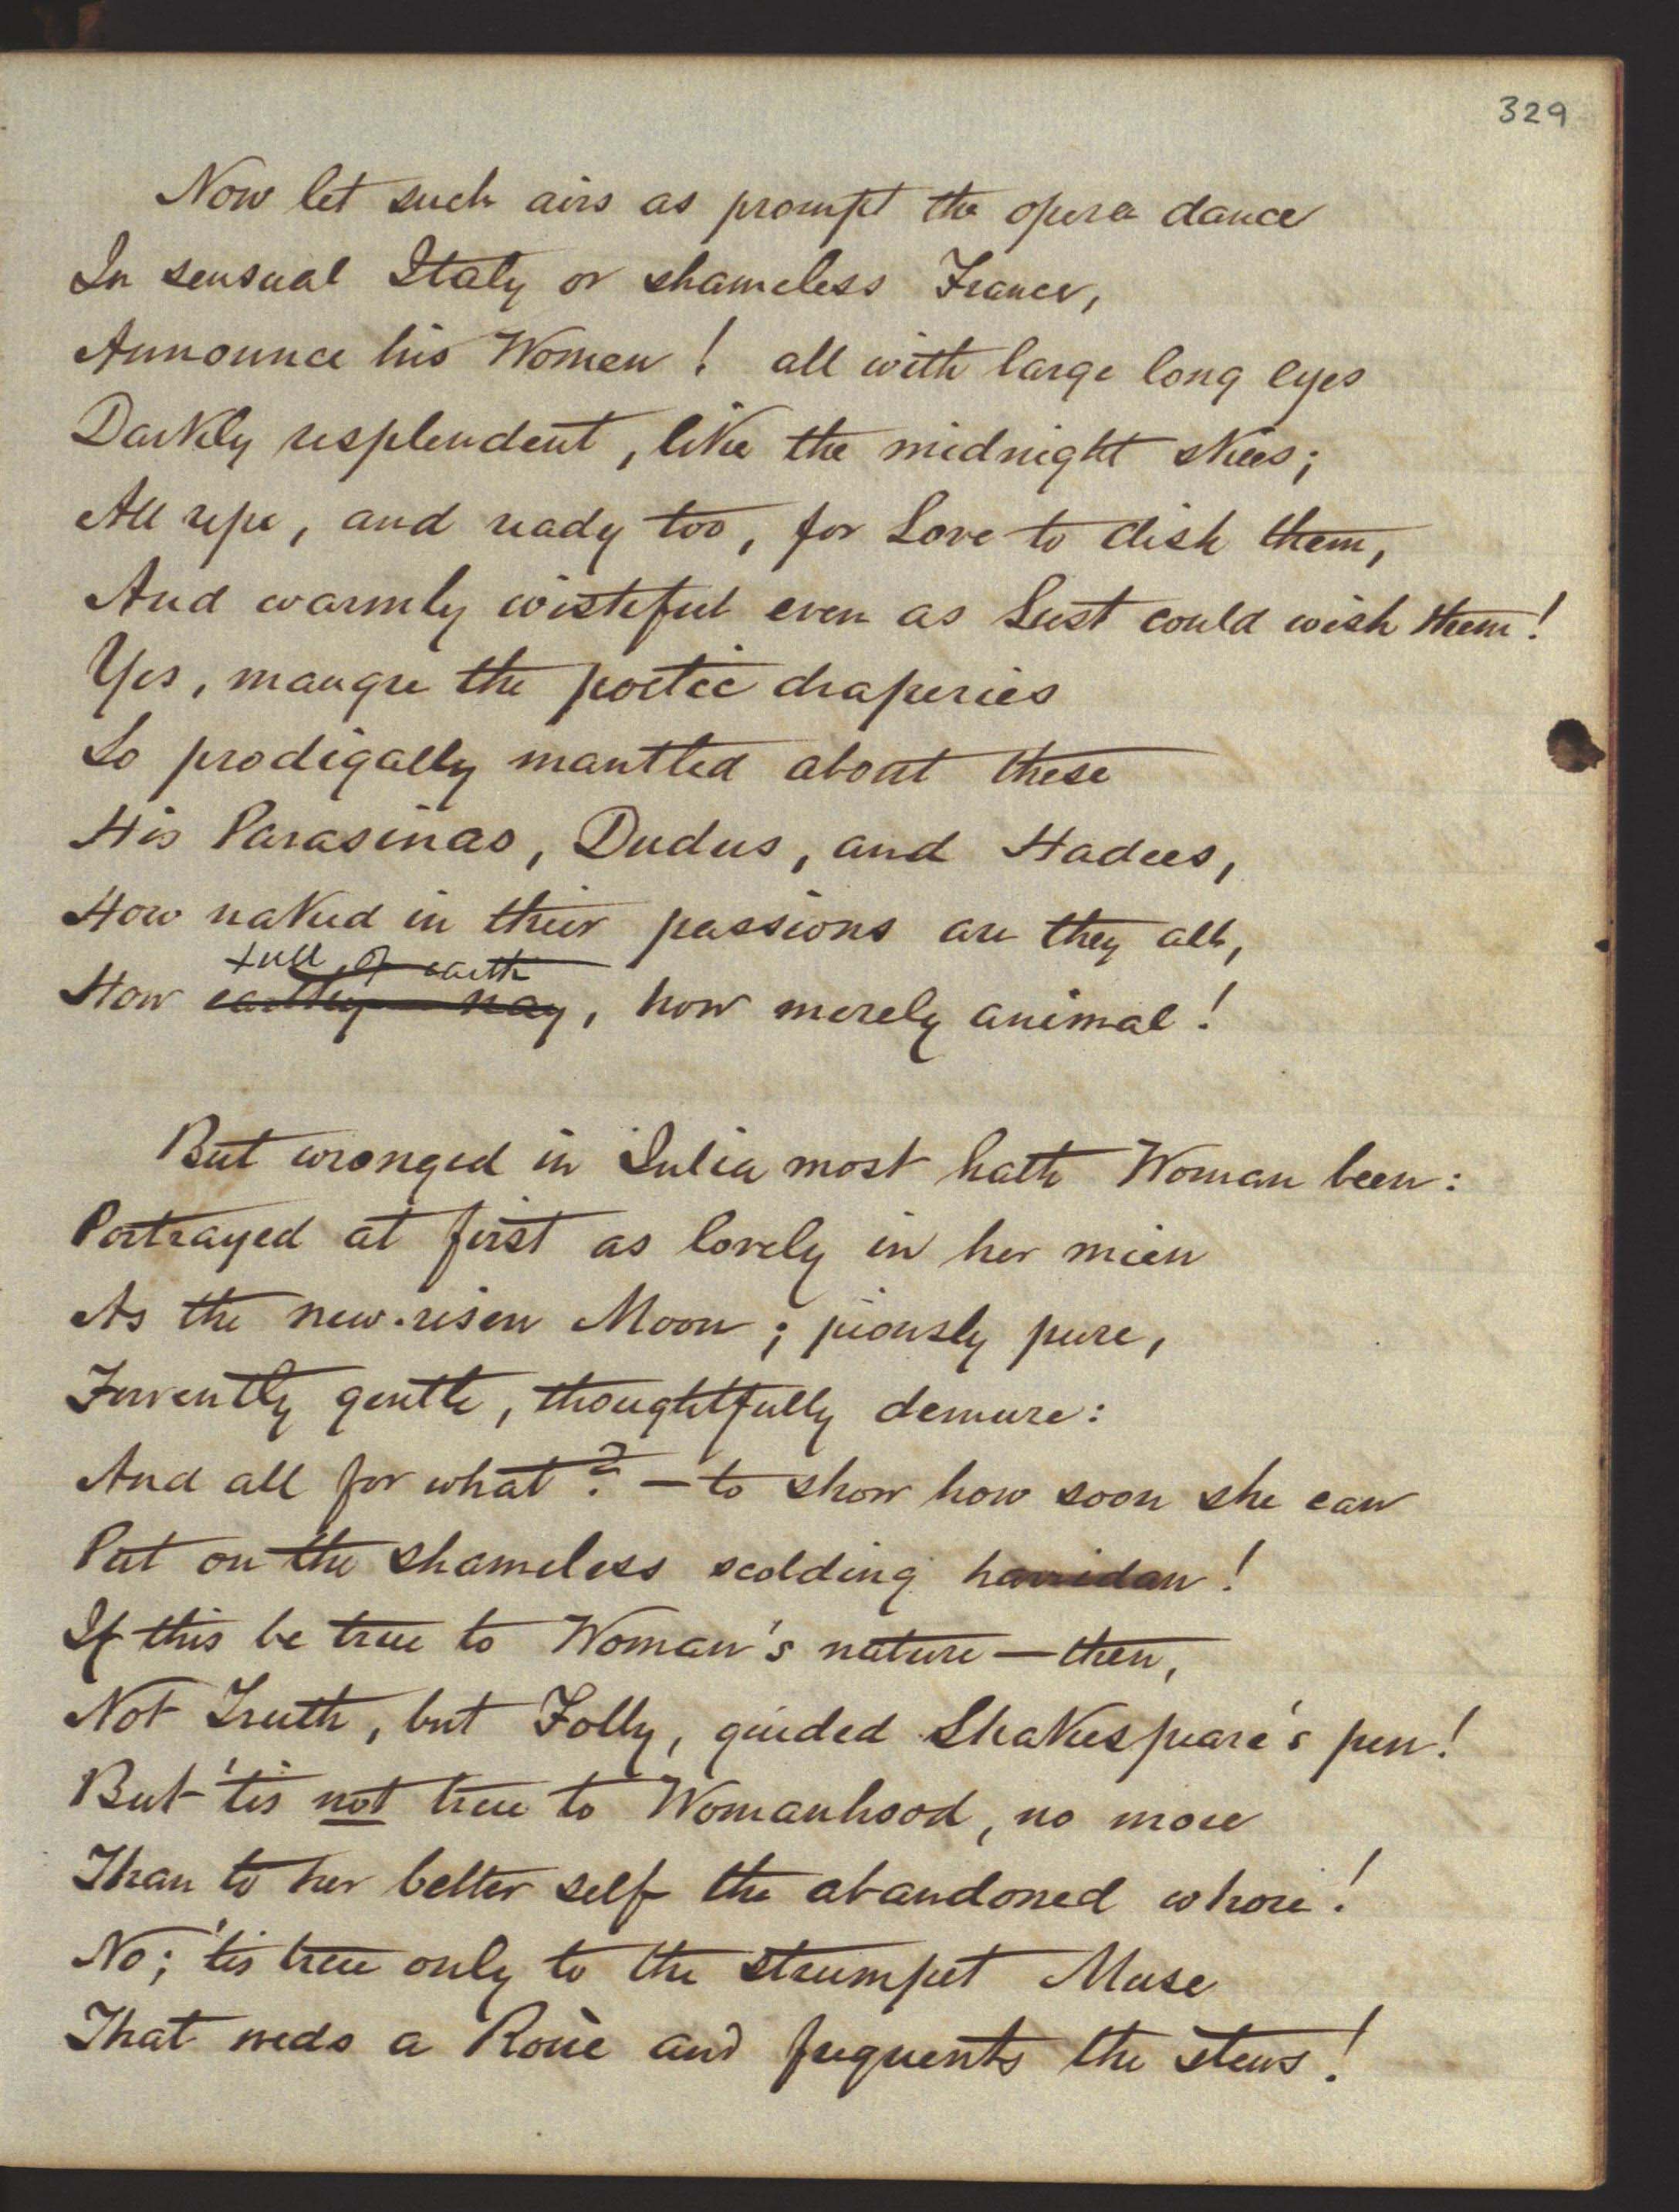 329
Now let such airs as prompt the opera dance
In sensual Italy or shameless France,
Announce his Women! all with large long eyes
Darkly resplendent, like the midnight skies;
All ripe, and ready too, for Love to dish them,
And warmly wistful even as Lust could wish them!
Yes, maugre the poetic draperies
So prodigally mantled about these
His Parasinas, Dudus, and Hadees,
How naked in their passions are they all,
full of earth
How earthy—nay, how merely animal!
But wronged in Julia most hath Woman been:
Portrayed at first as lovely in her mien
As the new-risen Moon; piously pure,
Fervently gentle, thoughtfully demure:
And all for what?—to show how soon she can
Put on the shameless scolding harridan!
If this be true to Woman's nature—then,
Not Truth, but Folly, guided Shakespeare's pen!
But 'tis not true to Womanhood, no more
Than to her better self the abandoned whore!
No; 'tis true only to the strumpet Muse
That weds a Roué and frequents the stews!